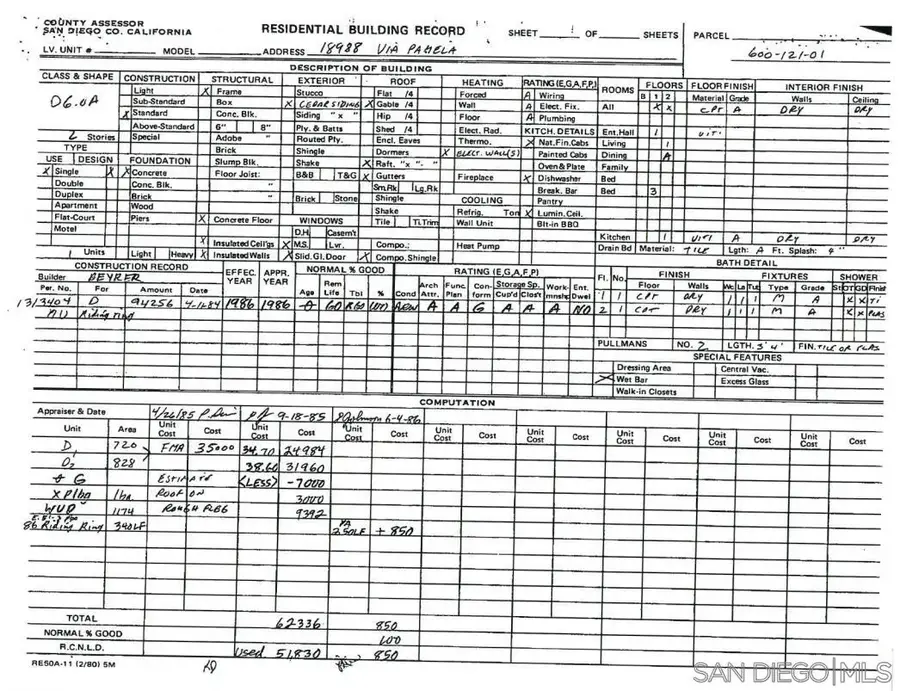 COUNTY ASSESSOR
SAN DIEGO CO. CALIFORNIA
RESIDENTIAL BUILDING RECORD
SHEET OF SHEETS
PARCEL 600-121-01
LV. UNIT # MODEL ADDRESS 18988 VIA PAMELA
DESCRIPTION OF BUILDING
CLASS & SHAPE CONSTRUCTION STRUCTURAL EXTERIOR ROOF HEATING RATING (E,G,A,F,P) ROOMS FLOORS FLOOR FINISH INTERIOR FINISH
B 1 2 Material Grade Walls Ceiling
D6.0A
Light X Frame Stucco Flat /4 Forced A Wiring
Sub-Standard Box X CEDAR SIDING X Gable /4 Wall A Elect. Fix. All X X CPT A DRY DRY
X Standard Conc. Blk. Siding "x " Hip /4 Floor A Plumbing
Above-Standard 6" 8" Ply. & Batts Shed /4 Elect. Rad. KITCH. DETAILS Ent. Hall 1 VIT.
2 Stories Special Adobe " Routed Ply. Encl. Eaves Thermo. X Nat. Fin. Cabs Living 1
TYPE Brick Shingle Dormers X ELECT. WALL(S) Painted Cabs Dining A
USE DESIGN FOUNDATION Slump Blk. Shake X Raft. "x "- " Oven & Plate Family
X Single X X Concrete Floor Joist: B&B T&G X Gutters Fireplace X Dishwasher Bed
Double Conc. Blk. " Sm.Rk Lg.Rk Break. Bar Bed 3
Duplex Brick " Brick Stone Shingle COOLING Pantry
Apartment Wood Shake Refrig. Ton X Lumin. Ceil.
Flat-Court Piers X Concrete Floor WINDOWS Tile Ti.Trim Wall Unit Blt-in BBQ
Motel D.H. Casem't Kitchen 1 VIT A DRY DRY
X Insulated Ceil'gs X M.S. Lvr. Compo.: Heat Pump Drain Bd Material: TILE Lgth: A Ft. Splash: 4"
1 Units Light Heavy X Insulated Walls X Slid. Gl. Door X Compo. Shingle BATH DETAIL
CONSTRUCTION RECORD EFFEC. YEAR APPR. YEAR NORMAL % GOOD RATING (E,G,A,F,P) Fl. No. FINISH FIXTURES SHOWER
Builder BEYRER
Per. No. For Amount Date Age Rem Life Tbl % Cond Arch Attr. Func. Plan Con-form Storage Sp. Cup'd Clos't Work-mnshp Ent. Dwel Floor Walls Wc La Tub Type Grade St OT GD Finish
1313404 D 94256 4-1-84 1986 1986 A 60 R60 100 New A A G A A A NO 1 1 CPT DRY 1 1 1 M A X X TI
Riding ring 2 1 CPT DRY 1 1 1 M A X X PLAS
PULLMANS NO. 2 LGTH. 3' 4' FIN. TILE OR PLAS
SPECIAL FEATURES
Dressing Area Central Vac.
X Wet Bar Excess Glass
Walk-in Closets
COMPUTATION
Appraiser & Date 4/26/85 9-18-85 Johnson 6-4-86
Unit Area Unit Cost Cost Unit Cost Cost Unit Cost Cost Unit Cost Cost Unit Cost Cost Unit Cost Cost Unit Cost Cost
D1 720 FMA 35000 34.70 24984
D2 828 38.60 31960
G ESTIMATE <LESS> -7000
XPlbg 1ba ROOF ON 3000
WUD 1174 ROUGH PLBG 9392
86 Riding Ring 340LF 2.50LF +850
TOTAL 62336 850
NORMAL % GOOD 100
R.C.N.L.D. Used 51,830 850
RE50A-11 (2/80) 5M
SAN DIEGO MLS